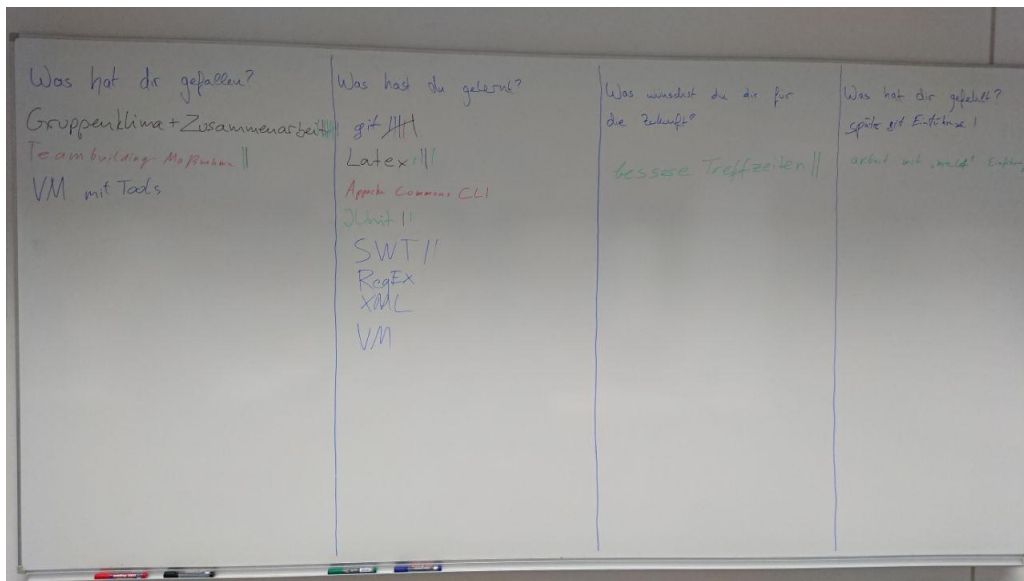 Was hat dir gefallen?
Gruppenklima + Zusammenarbeit
Teambuilding-Maßnahmen ||
VM mit Tools
Was hast du gelernt?
git
Latex ||||
Appache Commons CLI
JUnit ||
SWT ||
RegEx
XML
VM
Was wünschst du dir für
die Zukunft?
bessere Treffzeiten ||
Was hat dir gefehlt?
späte git Einführung |
arbeit mit "meld"